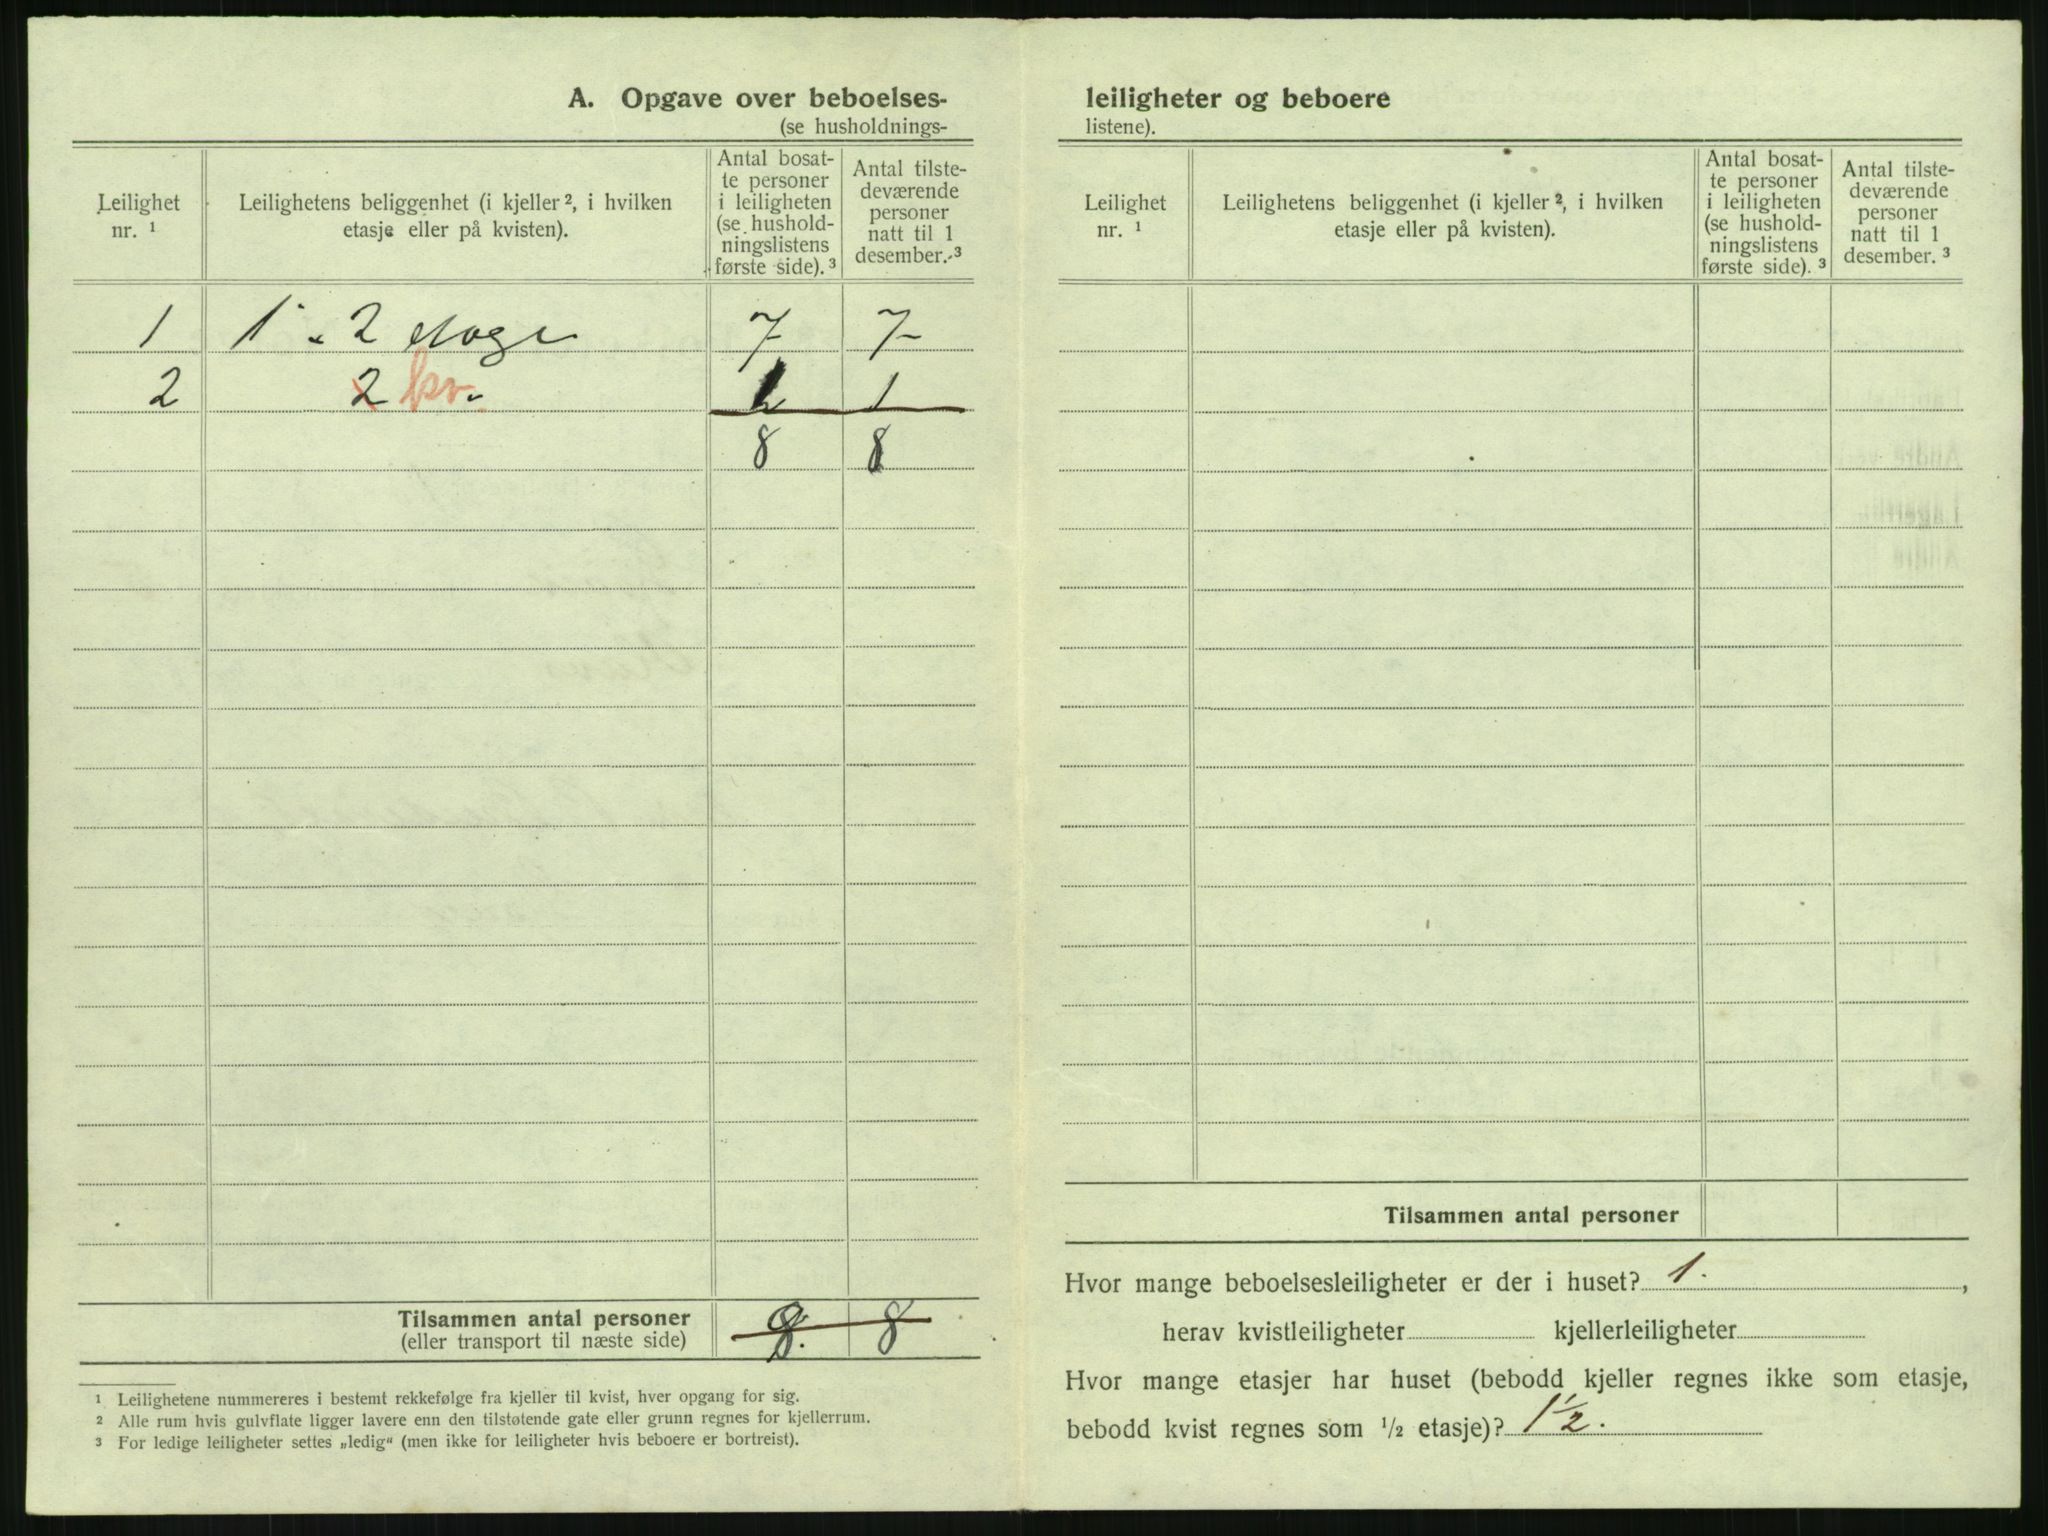 A. Opgave over beboelses-
(se husholdnings-
Leilighet nr. ¹
Leilighetens beliggenhet (i kjeller ², i hvilken etasje eller på kvisten).
Antal bosat-
te personer
i leiligheten
(se hushold-
ningslistens
første side). ³
Antal tilste-
deværende
personer
natt til 1
desember. ³
1 1 . 2 etage 7 7
2 2 kv. 1 1
8 8
Tilsammen antal personer 8. 8
(eller transport til næste side)
¹ Leilighetene nummereres i bestemt rekkefølge fra kjeller til kvist, hver opgang for sig.
² Alle rum hvis gulvflate ligger lavere enn den tilstøtende gate eller grunn regnes for kjellerrum.
³ For ledige leiligheter settes „ledig“ (men ikke for leiligheter hvis beboere er bortreist).
leiligheter og beboere
listene).
Leilighet nr. ¹
Leilighetens beliggenhet (i kjeller ², i hvilken etasje eller på kvisten).
Antal bosat-
te personer
i leiligheten
(se hushold-
ningslistens
første side). ³
Antal tilste-
deværende
personer
natt til 1
desember. ³
Tilsammen antal personer
Hvor mange beboelsesleiligheter er der i huset? 1. ,
herav kvistleiligheter kjellerleiligheter
Hvor mange etasjer har huset (bebodd kjeller regnes ikke som etasje,
bebodd kvist regnes som 1/2 etasje)? 1 1/2.